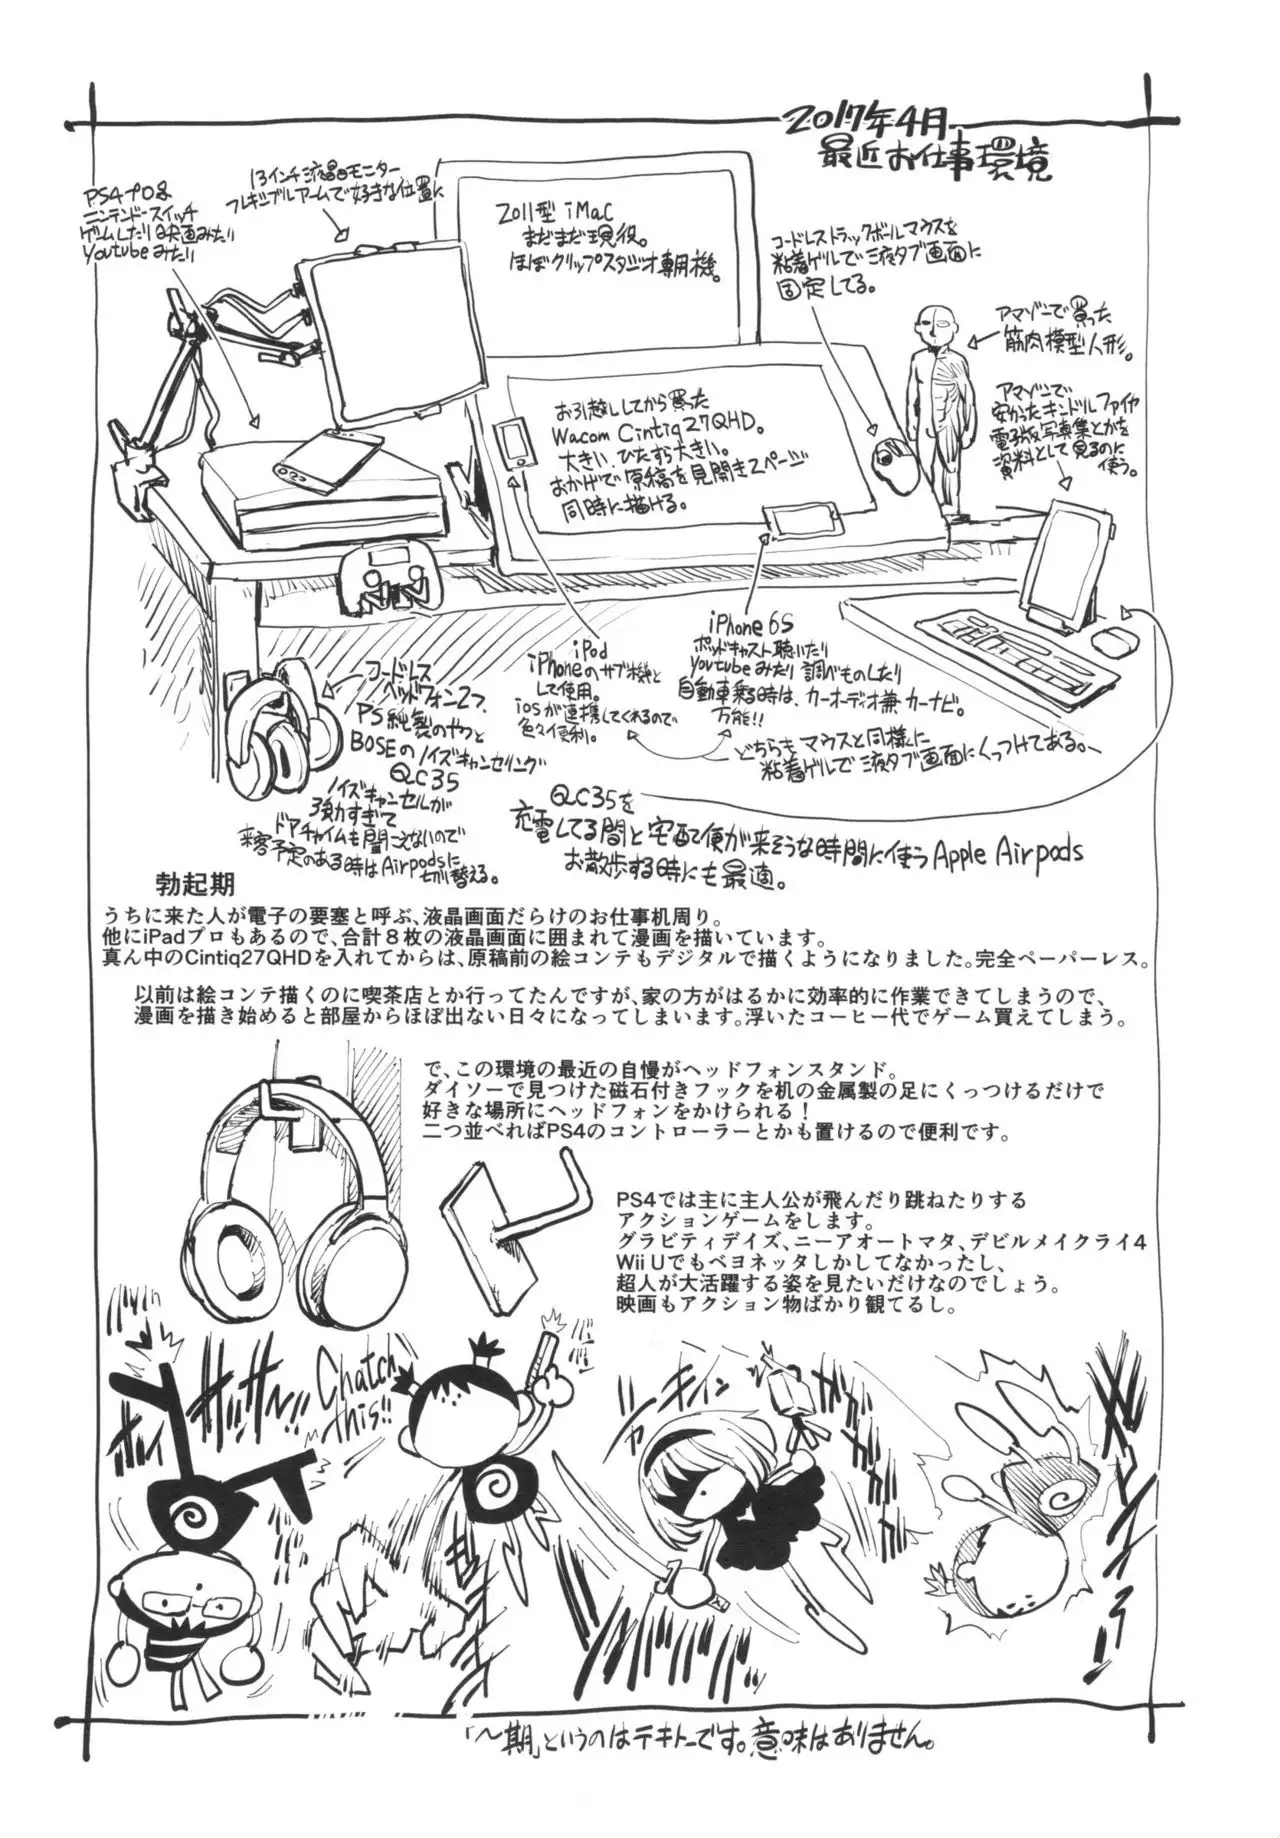 2017年4月
最近お仕事環境
PS4プロ&
ニンテンドースイッチ
ゲームしたり映画みたり
Youtubeみたり
13インチ液晶モニター
フレキシブルアームで好きな位置に
2011型 iMac
まだまだ現役。
ほぼクリップスタジオ専用機。
コードレストラックボールマウスを
粘着ゲルで液タブ画面に
固定してる。
アマゾンで買った
筋肉模型人形。
アマゾンで
安かったキンドルファイヤ
電子版写真集とかを
資料として見るのに
使う。
お引越ししてから買った
Wacom Cintiq27QHD。
大きい、ひたすら大きい。
おかげで原稿を見開き2ページ
同時に描ける。
iPod
iPhoneのサブ機と
して使用。
iosが連携してくれるので
色々便利。
iPhone6S
ポッドキャスト聴いたり
Youtubeみたり調べものしたり
自動車乗る時は、カーオーディオ兼カーナビ。
万能!!
どちらもマウスと同様に
粘着ゲルで液タブ画面にくっつけてある。
コードレス
ヘッドフォン2つ、
PS純製のやつと
BOSEのノイズキャンセリング
QC35
ノイズキャンセルが
強力すぎて
ドアチャイムも聞こえないので
来客予定のある時はAirpodsに
切り替える。
QC35を
充電してる間と宅配便が来そうな時間に使うApple Airpods
お散歩する時にも最適。
勃起期
うちに来た人が電子の要塞と呼ぶ、液晶画面だらけのお仕事机周り。
他にiPadプロもあるので、合計8枚の液晶画面に囲まれて漫画を描いています。
真ん中のCintiq27QHDを入れてからは、原稿前の絵コンテもデジタルで描くようになりました。完全ペーパーレス。
以前は絵コンテ描くのに喫茶店とか行ってたんですが、家の方がはるかに効率的に作業できてしまうので、
漫画を描き始めると部屋からほぼ出ない日々になってしまいます。浮いたコーヒー代でゲーム買えてしまう。
で、この環境の最近の自慢がヘッドフォンスタンド。
ダイソーで見つけた磁石付きフックを机の金属製の足にくっつけるだけで
好きな場所にヘッドフォンをかけられる!
二つ並べればPS4のコントローラーとかも置けるので便利です。
PS4では主に主人公が飛んだり跳ねたりする
アクションゲームをします。
グラビティデイズ、ニーアオートマタ、デビルメイクライ4
Wii Uでもベヨネッタしかしてなかったし、
超人が大活躍する姿を見たいだけなのでしょう。
映画もアクション物ばかり観てるし。
Chatch
this!!
「〜期」というのはテキトーです。意味はありません。